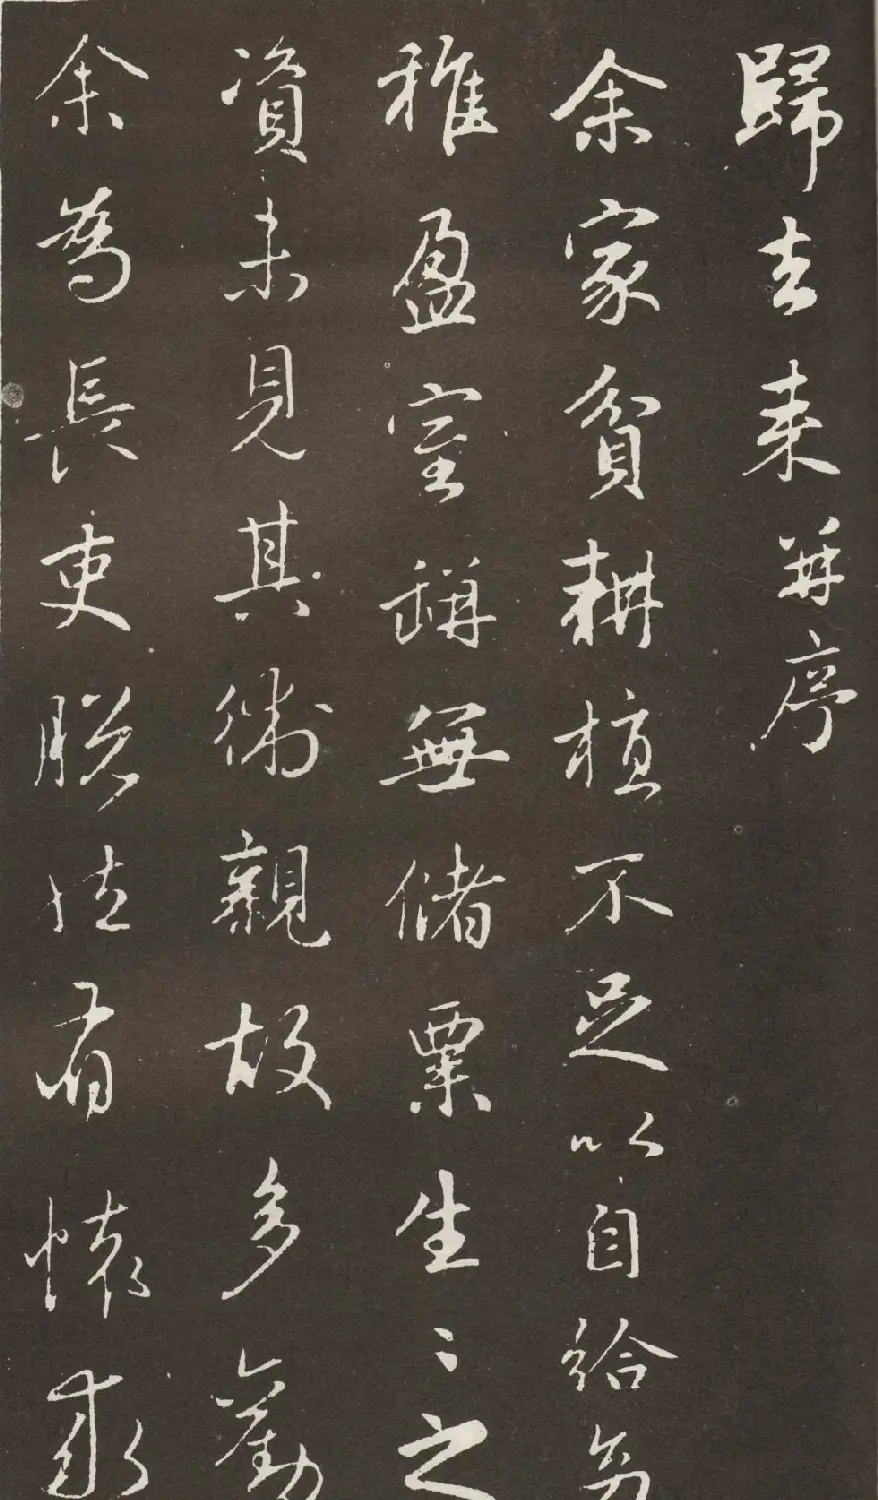 歸去来并序
余家貧耕植不足以自給幼
稚盈室缾無儲粟生〻之
資未見其術親故多勸
余為長吏脱然有懷求